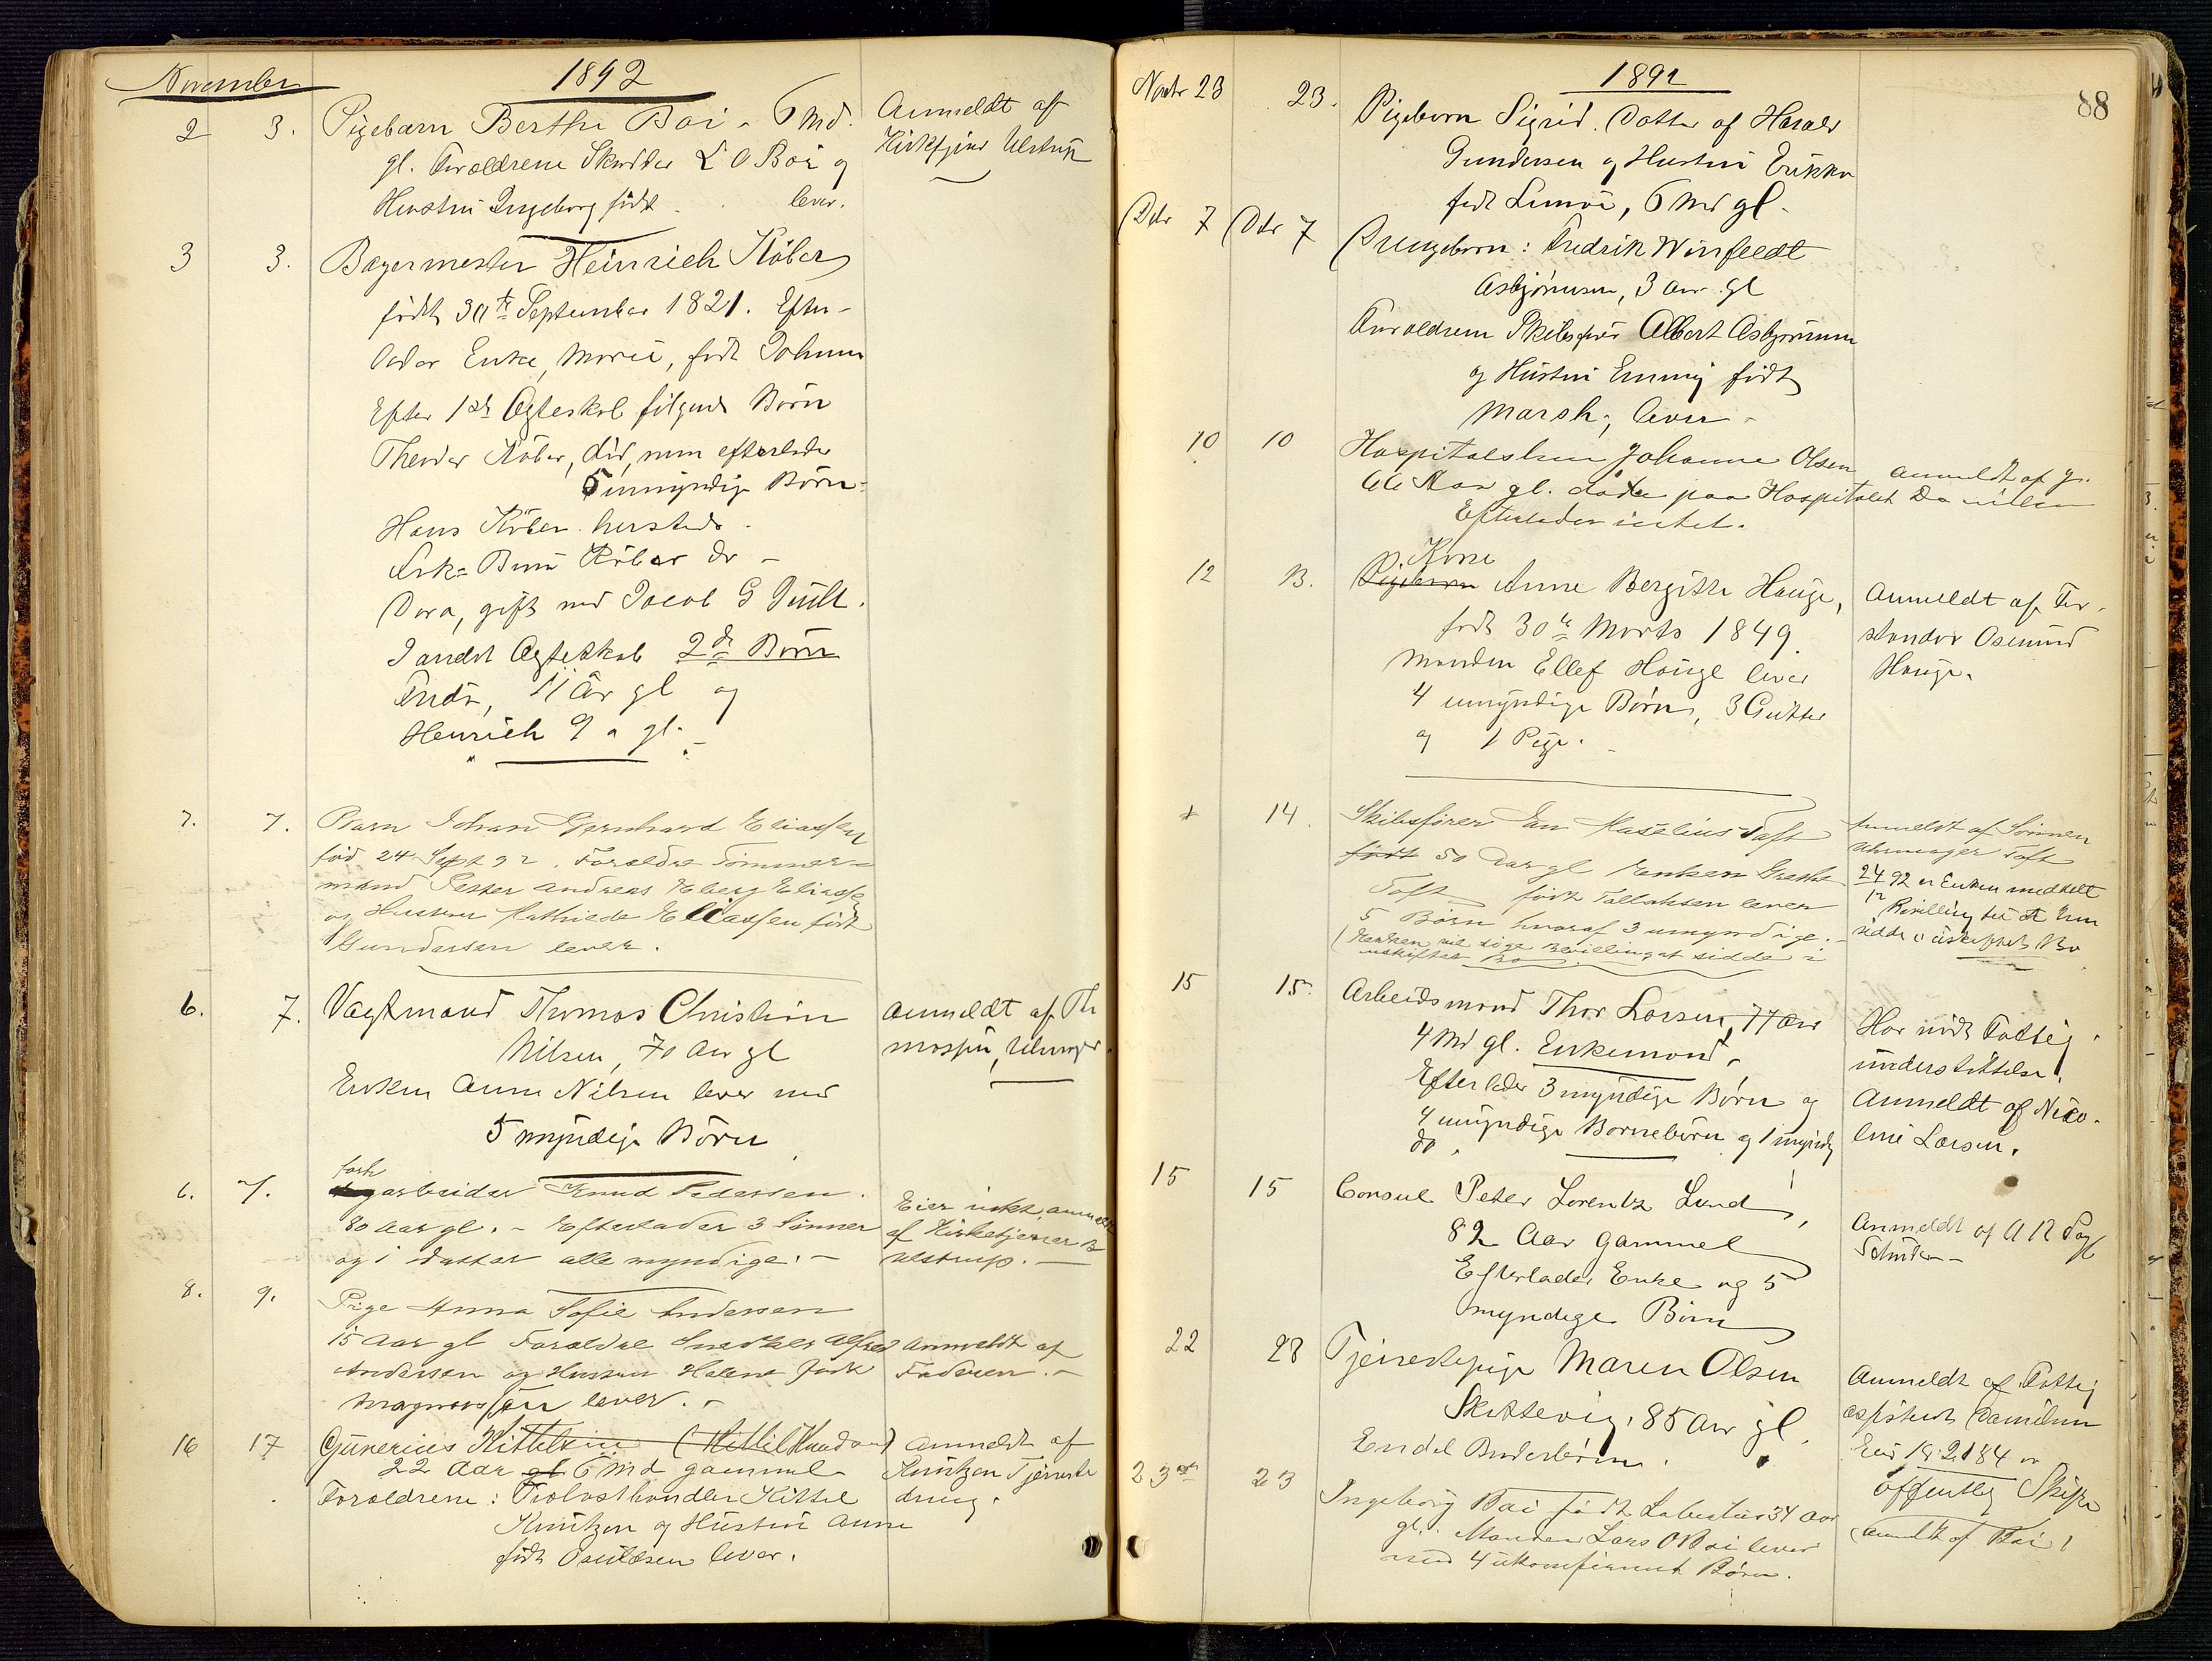 November
1892
2 3. Pigebarn Berthe Boi - 6 Md.
gl. Forældrene Skrædder L O Boi og
Hustru Ingeborg født . . lever.
Anmeldt af
Kirketjener Ulstrup
3 3. Bagermester Heinrich Köber
født 30te September 1821. Efter-
lader Enke, Marie, født Johnm
Efter 1st Ægteskab følgende Børn
Theodor Köber, død, men efterlader
5 umyndige Børn.
Hans Köber hersteds.
Frk= Köber do -
Dora, gift med Jacob G Juell.
I andet Ægteskab 2de Børn
11 Aar gl og
Henrich 9 a gl.
7. 7. Barn Johan Gernhard Eliassen
fød 24 Sept 92. Forældre Tømmer-
mand Petter Andreas Eliassen
og Hustru Mathilde Eliassen født
Gundersen lever.
6. 7. Vagtmand Thomas Christian
Nilsen, 70 Aar gl
Enken Anne Nilsen lever med
5 myndige Børn
Anmeldt af Th
6. 7. arbeider Knud Pedersen.
80 Aar gl. - Efterlader 3 Sønner
og 1 Datter alle myndige. -
Eier intet, anmeldt
af Kirketjener B
Ulstrup. -
8. 9. Pige Anna Sofie Andersen
15 Aar gl Forældre Snedker Alfred
Andersen og Hustru Helene født
Magnussen lever. -
Anmeldt af
Faderen. -
16 17 Gunerius Kittelsen (Kittil Knudsen)
22 Aar gl 6 Md gammel
Forældrene: Kittel
Knutzen og Hustru Anne
født Poulsen lever.
Anmeldt af
Knutzen Tjeneste
dreng.
1892
88
Novbr 23 23. Pigebarn Sigrid. Datter af Harald
Gundersen og Hustru Erikka
født , 6 Md gl.
Dcbr 7 Dcbr 7 Drengebarn: Fredrik Winfeldt
Asbjørnsen, 3 Aar gl
Forældrene Skibsfører Albert Asbjørnsen
og Hustru Emmy født
Marsh, lever -
10 10 Hospitalslem Johanne Olsen
66 Aar gl. døde paa Hospitalet
Efterlader intet.
Anmeldt af
12 13. Kone
Pigebarn Anne Bergitte Hauge,
født 30te Marts 1849.
Manden Ellef Hauge lever
4 umyndige Børn, 3 Gutter
og 1 Pige.
Anmeldt af For-
stander Osmund
Hauge.
14 Skibsfører Jan Toft
født 50 Aar gl Enken Grethe
Toft født Tallaksen lever
5 Børn hvoraf 3 umyndige. -
(Enken vil søge Bevilling at sidde i
uskiftet Bo
Anmeldt af Sønnen
Uhrmager Toft
24/12 92 er Enken meddelt
Bevilling til at hen
sidde i uskiftet Bo
15 15. Arbeidsmand Thor Larsen, 77 Aar
4 Md gl. Enkemand.
Efterlader 3 myndige Børn og
4 umyndige Børnebørn og 1 myndig
do.
Har nydt Fattig
understøttelse.
Anmeldt af Nico-
line Larsen.
15 15 Consul Peter Lorentz Lund,
82 Aar gammel
Efterlader Enke og 5
myndige Børn
Anmeldt af A R
22 23 Tjenestepige Maren Olsen
Skottevig, 85 Aar gl.
Endel Broderbørn.
Anmeldt af Fattig
Danielsen
offentlig Skifte
23de 23 Ingeborg Boi født 34 Aar
gl. Manden Lars O Boi lever
med 4 ukonfirmert Børn.
Anmeldt af Boi